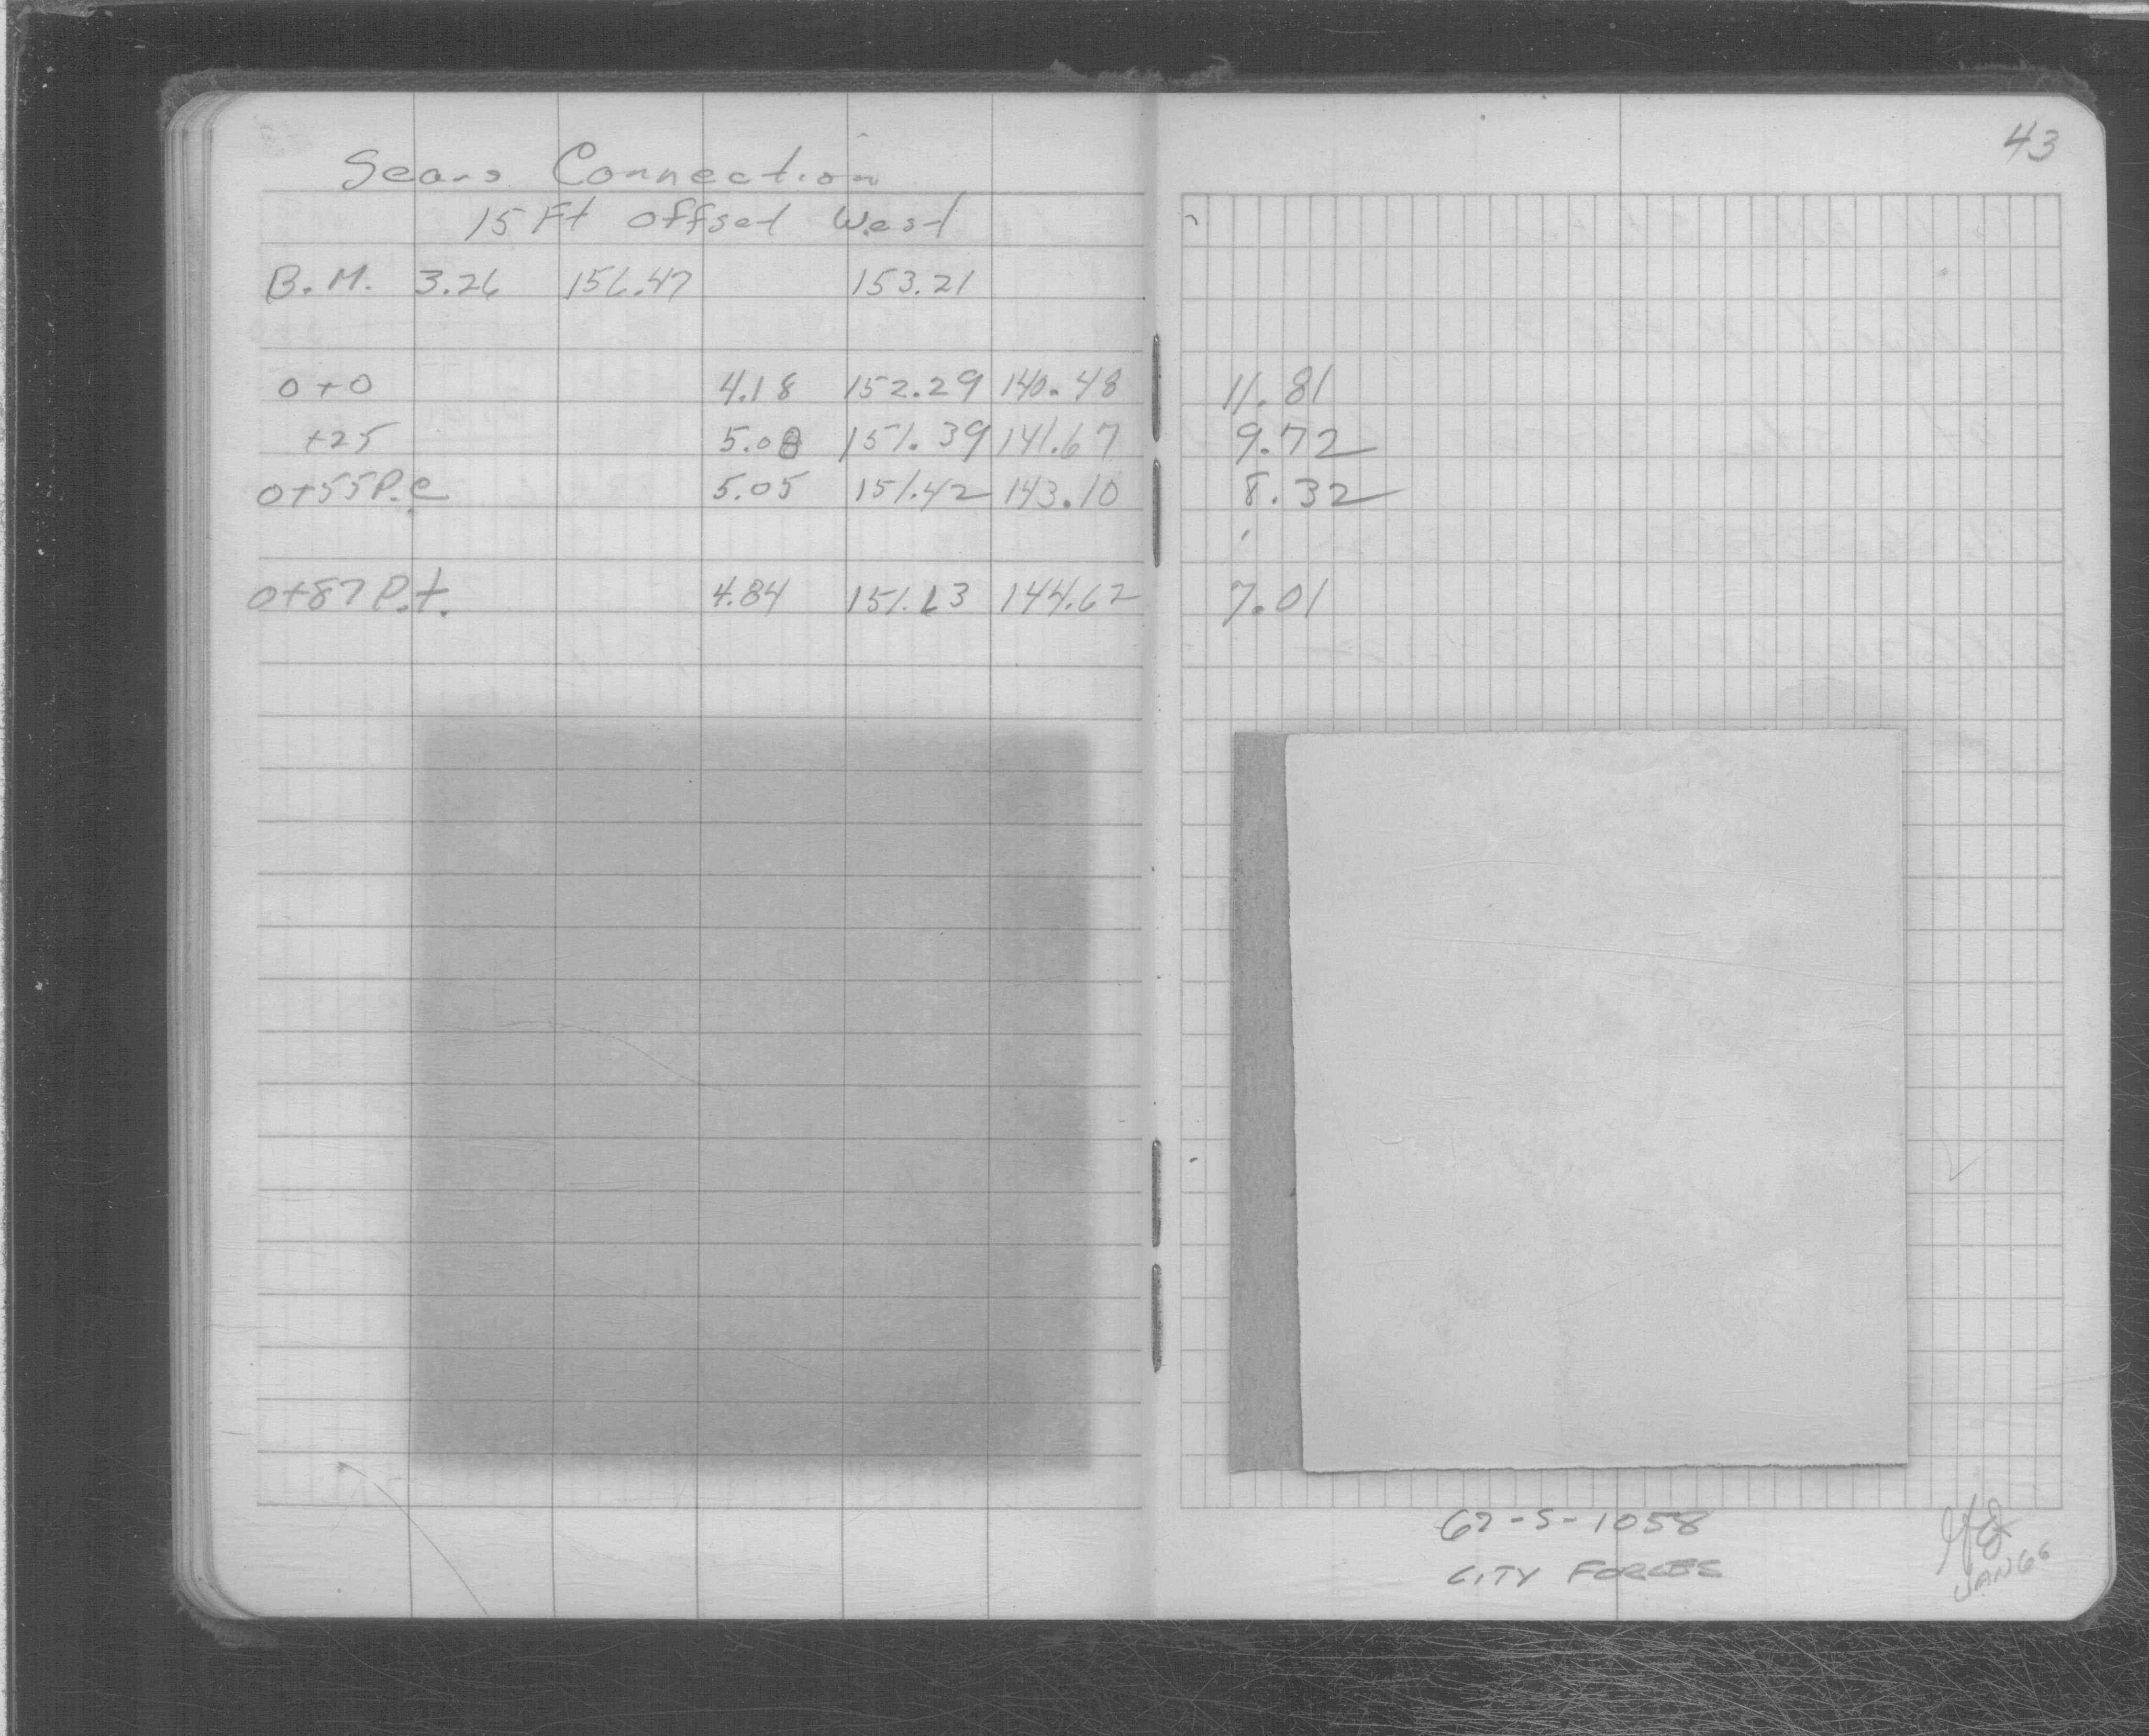 43
Sears Connection
15 Ft offset West
B.M. 3.26 156.47 153.21
0+0 4.18 152.29 140.48 11.81
+25 5.08 151.39 141.67 9.72
0+55 P.C 5.05 151.42 143.10 8.32
0+87 P.t. 4.84 151.63 144.62 7.01
62-S-1058
CITY FORCES
JAN 66